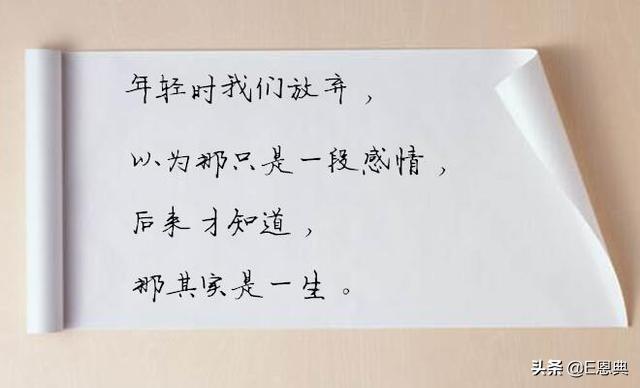 年轻时我们放弃，
以为那只是一段感情，
后来才知道，
那其实是一生。
头条 @E恩典